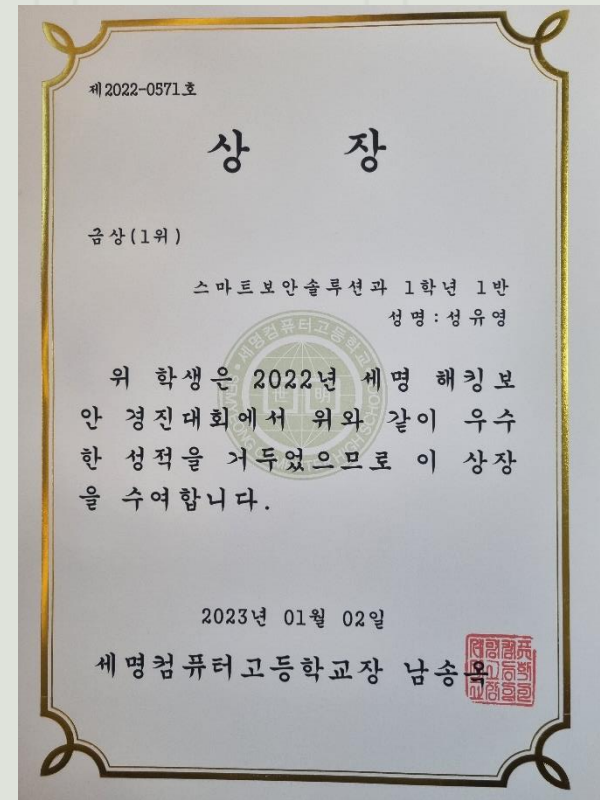 제2022-0571호
상 장
금상(1위)
스마트보안솔루션과 1학년 1반
성명:성유영
위 학생은 2022년 세명 해킹보
안 경진대회에서 위와 같이 우수
한 성적을 거두었으므로 이 상장
을 수여합니다.
세명컴퓨터고등학교
世明
2023년 01월 02일
세명컴퓨터고등학교장 남송옥